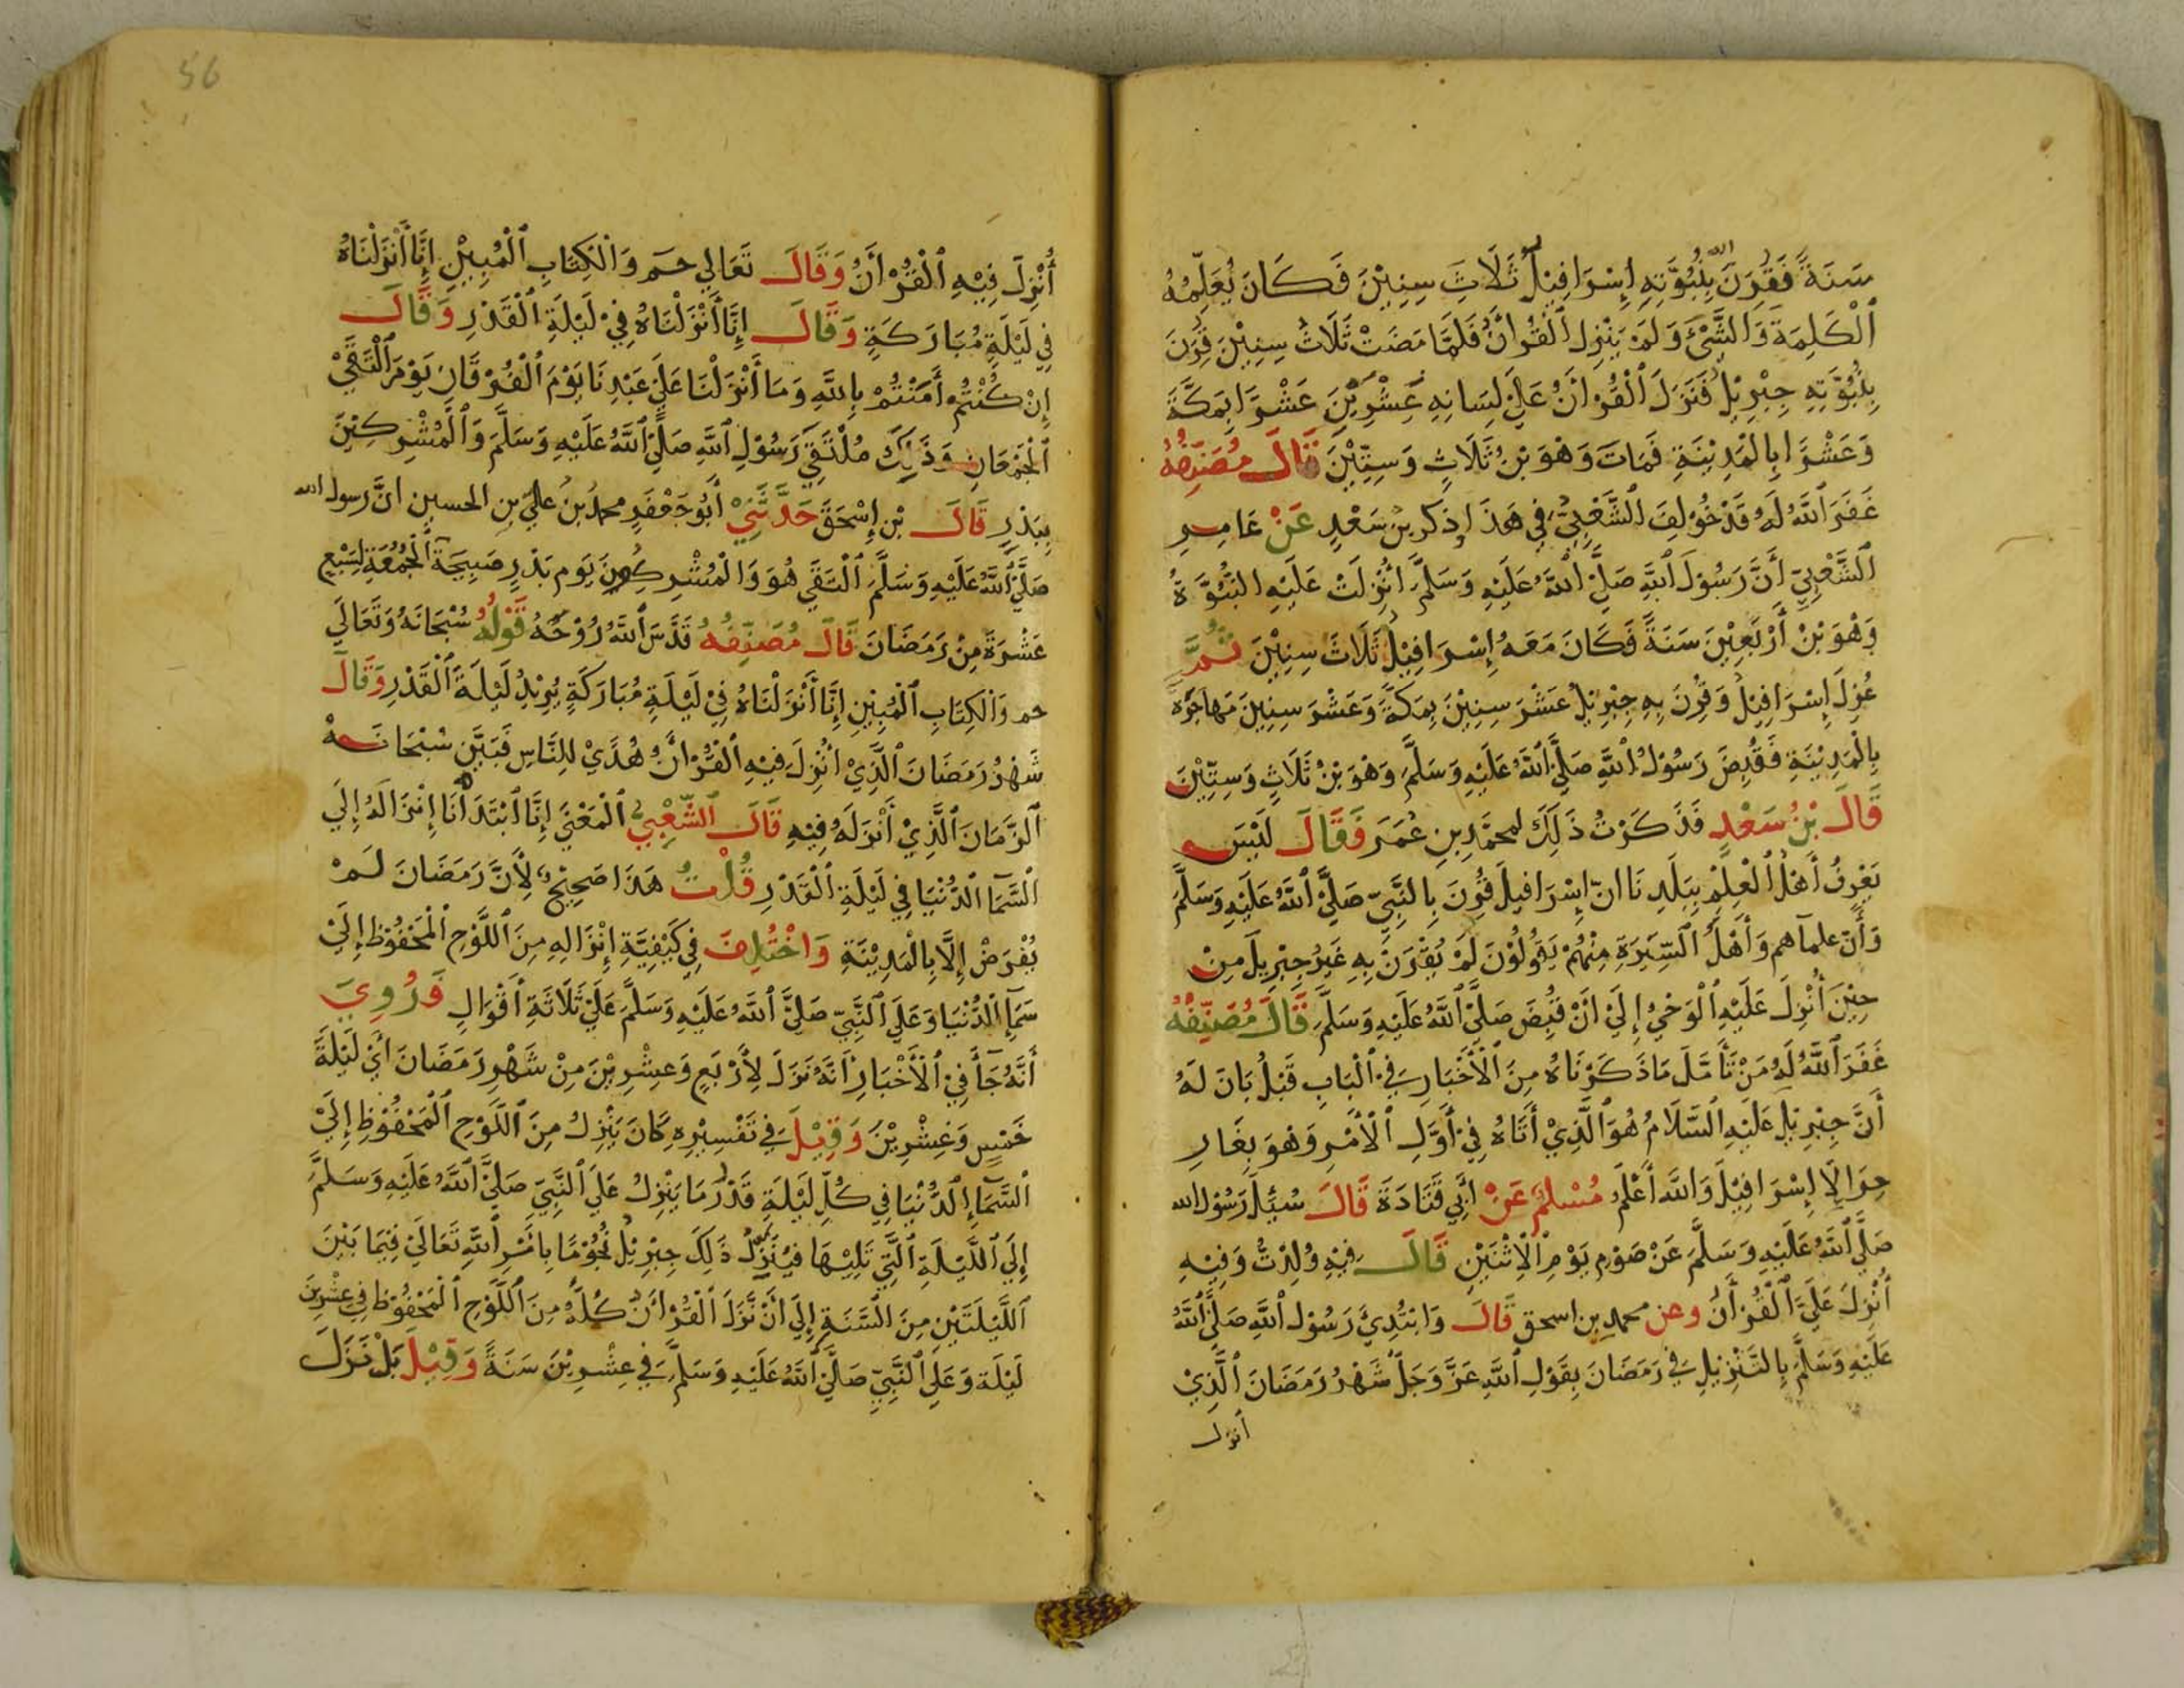 سَنَةً فَقُرِنَ بِنُبُوَّتِهِ إِسْرَافِيْلُ ثَلَاثَ سِنِيْنَ فَكَانَ يُعَلِّمُهُ
ٱلْكَلِمَةَ وَالشَّيْءَ وَلَمْ يَنْزِلِ ٱلْقُرْأَنُ فَلَمَّا مَضَتْ ثَلَاثُ سِنِيْنَ قُرِنَ
بِنُبُوَّتِهِ جِبْرِيْلُ فَنَزَلَ ٱلْقُرْأَنُ عَلَي لِسَانِهِ عِشْرِيْنَ عَشْرًا بِمَكَّةَ
وَعَشْرًا بِالْمَدِيْنَةِ فَمَاتَ وَهْوَ بْنُ ثَلَاثٍ وَسِتِّيْنَ قَالَ مُصَنِّفُهُ
غَفَرَ ٱللَّهُ لَهُ قَدْ خُوْلِفَ ٱلشَّعْبِيُّ فِي هَذَا ذكر بن سَعْدٍ عَنْ عَامِرٍ
ٱلشَّعْبِيِّ أَنَّ رَسُوْلَ ٱللَّهِ صَلَّي ٱللَّهُ عَلَيْهِ وَسَلَّمَ أُنْزِلَتْ عَلَيْهِ النُّبُوَّةُ
وَهْوَ بْنُ أَرْبَعِيْنَ سَنَةً فَكَانَ مَعَهُ إِسْرَافِيْلُ ثَلَاثَ سِنِيْنَ ثُمَّ
عُزِلَ إِسْرَافِيْلُ وَقُرِنَ بِهِ جِبْرِيْلُ عَشْرَ سِنِيْنَ بِمَكَّةَ وَعَشْرَ سِنِيْنَ مَهَاجَرَهُ
بِالْمَدِيْنَةِ فَقُبِضَ رَسُوْلُ ٱللَّهِ صَلَّي ٱللَّهُ عَلَيْهِ وَسَلَّمَ وَهْوَ بْنُ ثَلَاثٍ وَسِتِّيْنَ
قَالَ بْنُ سَعْدٍ فَذَكَرْتُ ذَلِكَ لمحمَّدِ بنِ عُمَرَ فَقَالَ لَيْسَ
يَعْرِفُ أَهْلُ ٱلْعِلْمِ بِبَلَدِنَا انّ إِسْرَافيلَ قُرِنَ بِالنَّبِيِّ صَلَّي ٱللَّهُ عَلَيْهِ وَسَلَّمَ
وَأَنَّ علمآهم وَأَهْلَ ٱلسِّيْرَةِ مِنْهُمْ يَقُولُوْنَ لَمْ يُقْرَنْ بِهِ غَيْرُ جِبْرِيلَ مِنْ
حِيْنَ أُنْزِلَ عَلَيْهِ ٱلْوَحْيُ إِلَيْ أَنْ قُبِضَ صَلَّي ٱللَّهُ عَلَيْهِ وَسَلَّمَ قَالَ مُصَنِّفُهُ
غَفَرَ ٱللَّهُ لَهُ مَنْ تَأَمَّلَ مَا ذَكَرْنَاهُ مِنَ ٱلْأَخْبَارِ فِي ٱلْبَابِ قَبْلُ بَانَ لَهُ
أَنَّ جِبْرِيْلَ عَلَيْهِ ٱلسَّلَامُ هُوَ ٱلَّذِيْ أَتَاهُ فِيْ أَوَّلِ ٱلْأَمْرِ وَهْوَ بِغَارِ
حِرَا لَا إِسْرَافِيْلَ وَاللَّهُ أَعْلَمُ مُسْلِمٌ عَنْ أَبِي قَتَادَةَ قَالَ سُئِلَ رَسُوْلُ الله
صَلَّي ٱللَّهُ عَلَيْهِ وَسَلَّمَ عَنْ صَوْمِ يَوْمِ ٱلْإِثْنَيْنِ قَالَ فِيْهِ وُلِدْتُ وَفِيْهِ
أُنْزِلَ عَلَيَّ ٱلْقُرْأَنُ وعن محمدِ بن اسحق قَالَ وَابْتُدِئَ رَسُوْلُ ٱللَّهِ صَلَّي ٱللَّهُ
عَلَيْهِ وَسَلَّمَ بِالتَّنْزِيْلِ فِي رَمَضَانَ بِقَوْلِ ٱللَّهِ عَزَّ وَجَلَّ شَهْرُ رَمَضَانَ ٱلَّذِيْ
أنزل
56
أُنْزِلَ فِيْهِ ٱلْقُرْأَنُ وَقَالَ تَعَالي حـم وَالْكِتَابِ ٱلْمُبِيْنِ إِنَّا أَنْزَلْنَاهُ
فِي لَيْلَةٍ مُبَارَكَةٍ وَقَالَ إِنَّا أَنْزَلْنَاهُ فِيْ لَيْلَةِ ٱلْقَدْرِ وَقَالَ
إِنْ كُنْتُمْ أَمَنْتُمْ بِاللَّهِ وَمَا أَنْزَلْنَا عَلَيْ عَبْدِنَا يَوْمَ ٱلْفُرْقَانِ يَوْمَ ٱلْتَقَيْ
ٱلْجَمْعَانِ وَذَلِكَ مُلْتَقَيْ رَسُوْلِ ٱللَّهِ صَلَّي ٱللَّهُ عَلَيْهِ وَسَلَّمَ وَالْمُشْرِكِيْنَ
بِبَدْرٍ قَالَ بْنِ إِسْحَقَ حَدَّثَنِيْ أَبُو جَعْفَرٍ محمدُ بنُ عليّ بنِ الحسين انَّ رسول الله
صَلَّي ٱللَّهُ عَلَيْهِ وَسَلَّمَ ٱلْتَقَي هُوَ وَالْمُشْرِكُونَ يَوْم بَدْرٍ صَبِيحَةَ ٱلْجُمُعَةِ لِسَبْعِ
عَشْرَةَ مِنْ رَمَضَانَ قَالَ مُصَنِّفُهُ قَدَّسَ ٱللَّهُ رُوْحَهُ قَوْلُهُ سُبْحَانَهُ وَتَعَالَي
حم وَالْكِتَابِ ٱلْمُبِيْنِ إِنَّا أَنْزَلْنَاهُ فِيْ لَيْلَةٍ مُبَارَكَةٍ يُرِيْدُ لَيْلَةَ ٱلْقَدْرِ وَقَالَ
شَهْرُ رَمَضَانَ ٱلَّذِيْ أُنْزِلَ فِيْهِ ٱلْقُرْأَنُ هُدًيْ لِلنَّاسِ فَبَيَّنَ سُبْحَانَهُ
ٱلزَّمَانَ ٱلَّذِيْ أَنْزَلَهُ فِيْهِ قَالَ ٱلشَّعْبِيُّ ٱلْمَعْنَي إِنَّا ٱبْتَدَأْنَا إِنْزَالَهُ إِلَي
ٱلسَّمَآ ٱلدُّنْيَا فِي لَيْلَةِ ٱلْقَدْرِ قُلْتُ هَذَا صَحِيْحٌ لِأَنَّ رَمَضَانَ لَمْ
يُفْرَضْ إِلَّا بِالْمَدِيْنَةِ وَاخْتُلِفَ فِي كَيْفِيَّةِ إِنْزَالِهِ مِنَ ٱللَّوْحِ ٱلْمَحْفُوْظِ إِلَيْ
سَمَآءِ ٱلدُّنْيَا وَعَلَي ٱلنَّبِيِّ صَلَّي ٱللَّهُ عَلَيْهِ وَسَلَّمَ عَلَيْ ثَلَاثَةِ أَقْوَالٍ فَرُوِيَ
أَنَّهُ جَآ فِيْ ٱلْأَخْبَارِ أَنَّهُ نَزَلَ لِأَرْبَعٍ وَعِشْرِيْنَ مِنْ شَهْرِ رَمَضَانَ أَيْ لَيْلَةَ
خَمْسٍ وَعِشْرِيْنَ وَقِيْلَ فِي تَفْسِيْرِهِ كَانَ يَنْزِلُ مِنَ ٱللَّوْحِ ٱلْمَحْفُوْظِ إِلَيْ
ٱلسَّمَآءِ ٱلدُّنْيَا فِي كُلِّ لَيْلَةٍ قَدْرُ مَا يَنْزِلُ عَلَي ٱلنَّبِيّ صَلَّي ٱللَّهُ عَلَيْهِ وَسَلَّمَ
إِلَي ٱللَّيْلَةِ ٱلَّتِي تَلِيْهَا فَيُنَزِّلُ ذَلِكَ جِبْرِيْلُ نُجُوْمًا بِأَمْرِ ٱللَّهِ تَعَالَيْ فِيْمَا بَيْنَ
ٱللَّيْلَتَيْنِ مِنَ ٱلسَّنَةِ إِلَي أَنْ نَّزَلَ ٱلْقُرْأَنُ كُلُّهُ مِنَ ٱللَّوْحِ ٱلْمَحْفُوْظِ فِي عِشْرِيْنَ
لَيْلَة وَعَلَي ٱلنَّبِيِّ صَلَّي ٱللَّهُ عَلَيْهِ وَسَلَّمَ فِي عِشْرِيْنَ سَنَةً وَقِيْلَ بَلْ نَزَلَ